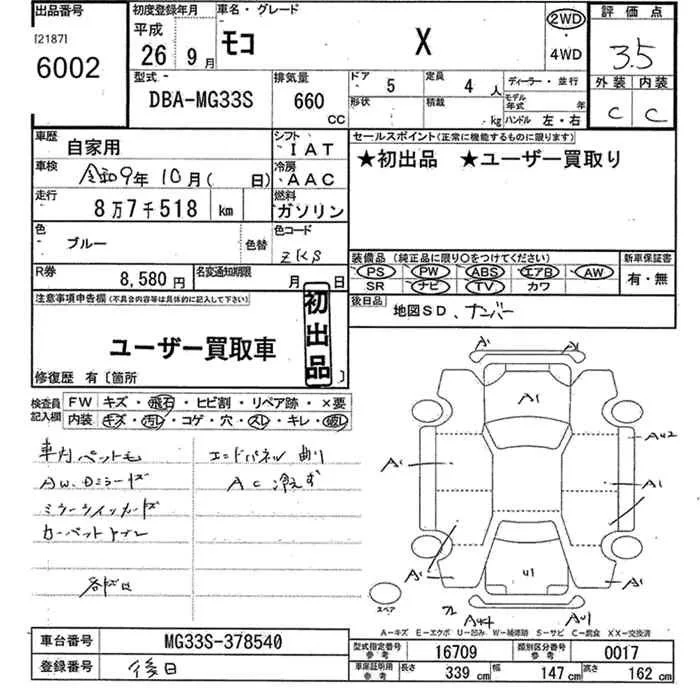 出品番号 初度登録年月 車名・グレード 評価点
[2187]
6002
平成
26年9月
モコ X
2WD
・
4WD
3.5
外装 内装
C C
型式 排気量 ドア 5 定員 4人 ディーラー・並行
DBA-MG33S 660 CC
形状 積載 kg モデル年式 年
ハンドル 左・右
車歴 自家用
シフト IAT
車検 令和9年10月( 日)
冷房 AAC
走行 8万7千518 km
燃料 ガソリン
色 ブルー 色替
色コード ZKS
R券 8,580円 名変通知期限 月 日
セールスポイント(正常に機能するものに限ります)
★初出品 ★ユーザー買取り
装備品(純正品に限り○をつけてください) 新車保証書
PS PW ABS エアB AW
SR ナビ TV カワ
有・無
後日品 地図SD、ナンバー
注意事項申告欄(不具合内容等は具体的に記入して下さい)
初出品
ユーザー買取車
修復歴 有〔箇所 〕
検査員記入欄
FW キズ・飛石・ヒビ割・リペア跡・×要
内装 キズ・汚レ・コゲ・穴・スレ・キレ・破レ
車内ペット毛 エンドパネル曲り
AW、Dミラーキズ AC冷えず
ミラーウィンカーキズ
カーペットヤブレ
各キズ凹
A1 A1
A1
A1 AU2
A1
A1 U1 A1
スペア
AU1
A-キズ E-エクボ U-凹み W-補修跡 S-サビ C-腐食 XX-交換済
車台番号 MG33S-378540
登録番号 後日
型式指定番号 参考 16709 類別区分番号 参考 0017
車庫証明用 参考 長さ 339 cm 幅 147 cm 高さ 162 cm